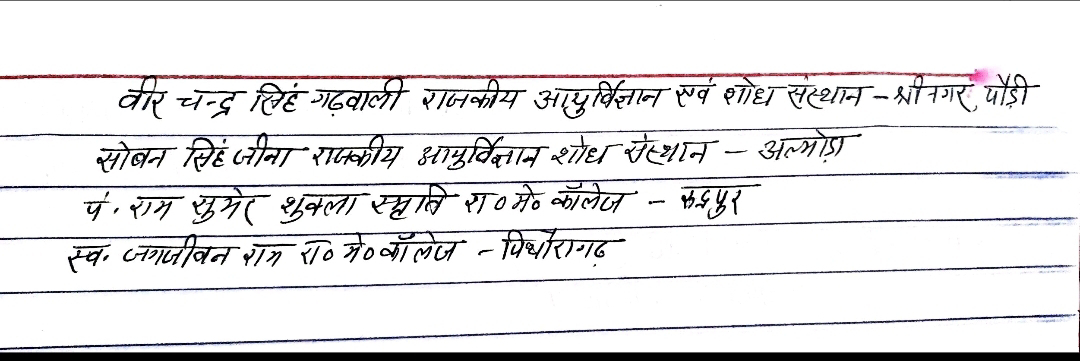 वीर चन्द्र सिंह गढ़वाली राजकीय आयुर्विज्ञान एवं शोध संस्थान - श्रीनगर, पौड़ी
सोबन सिंह जीना राजकीय आयुर्विज्ञान शोध संस्थान - अल्मोड़ा
पं. राम सुमेर शुक्ला स्मृति रा० मे० कॉलेज - रूद्रपुर
स्व. जगजीवन राम रा० मे० कॉलेज - पिथौरागढ़